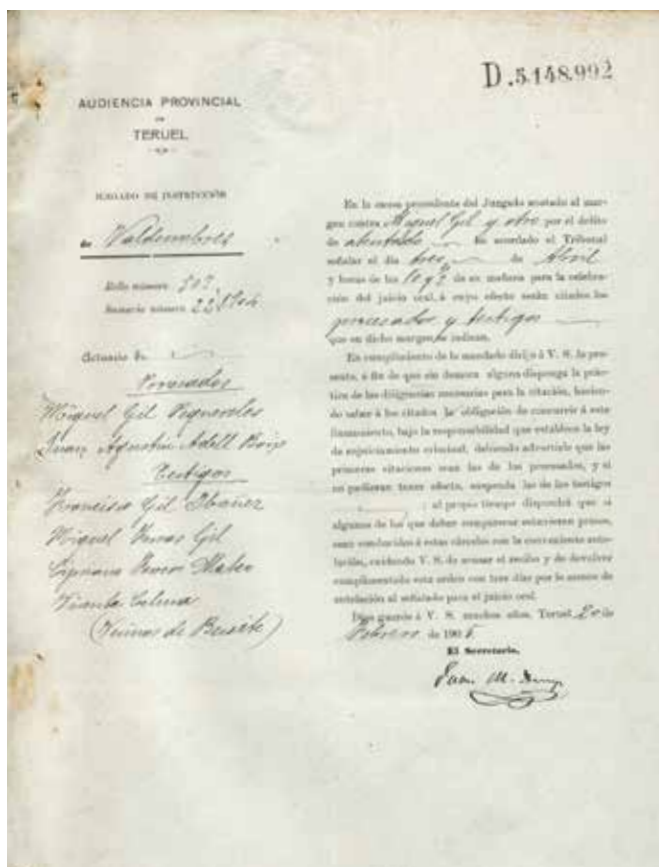 D.5.148.992
AUDIENCIA PROVINCIAL
DE
TERUEL
JUZGADO DE INSTRUCCIÓN
de Valderrobres
Rollo número 507
Sumario número 22
Actuario D.
Procesados
Miguel Gil
Juan Agustín Adell Boix
Testigos
Francisco Gil Ibañez
Miguel Gil
Cipriano Mateo
Vicente
(Vecinos de Beceite)
En la causa procedente del Juzgado anotado al mar-
gen contra Miguel Gil y otro por el delito
de atentado ha acordado el Tribunal
señalar el día tres de Abril
y horas de las 10 y ½ de su mañana para la celebra-
ción del juicio oral, á cuyo efecto serán citados los
procesados y testigos
que en dicho margen se indican.
En cumplimiento de lo mandado dirijo á V. S. la pre-
sente, á fin de que sin demora alguna disponga la prác-
tica de las diligencias necesarias para la citación, hacien-
do saber á los citados la obligación de concurrir á este
llamamiento, bajo la responsabilidad que establece la ley
de enjuiciamiento criminal, debiendo advertirle que las
primeras citaciones sean las de los procesados, y si
no pudieran tener efecto, suspenda las de los testigos
; al propio tiempo dispondrá que si
algunos de los que deben comparecer estuvieran presos,
sean conducidos á estas cárceles con la conveniente ante-
lación, cuidando V. S. de acusar el recibo y de devolver
cumplimentada esta orden con tres días por lo menos de
antelación al señalado para el juicio oral.
Dios guarde á V. S. muchos años. Teruel 20 de
Febrero de 190
El Secretario,
Juan M.